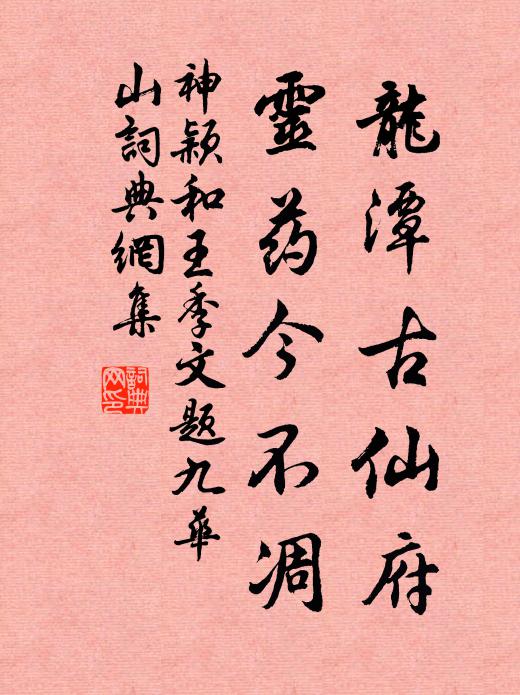 龍潭古仙府
靈药今不凋
神颖和王季文题九華
山詞典網集
詞典網印